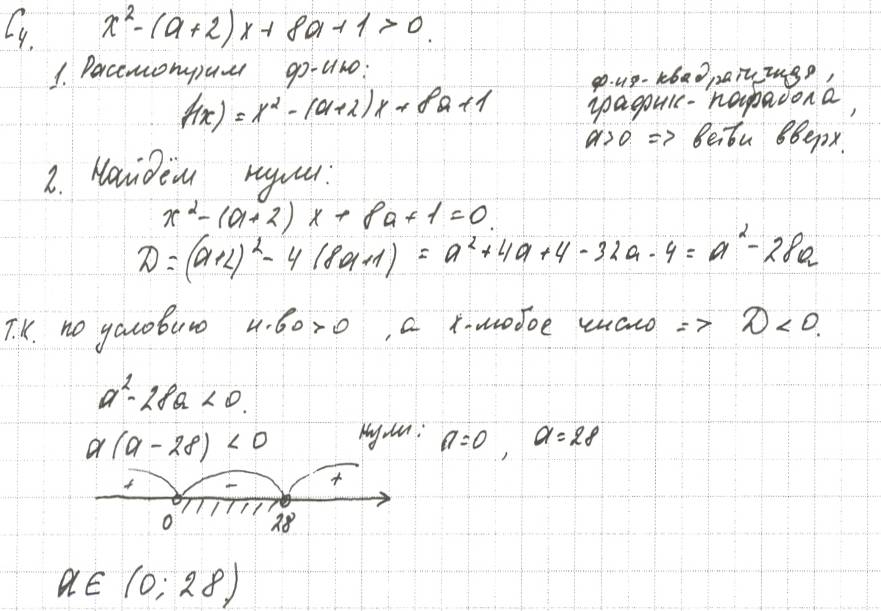 C4. x² - (a+2)x + 8a + 1 > 0.
1. Рассмотрим ф-ию:
f(x) = x² - (a+2)x + 8a + 1
ф-ия - квадратичная,
график - парабола,
a>0 => ветви вверх.
2. Найдём нули:
x² - (a+2)x + 8a + 1 = 0.
D = (a+2)² - 4(8a+1) = a² + 4a + 4 - 32a - 4 = a² - 28a
т.к. по условию н-во > 0, а x-любое число => D < 0.
a² - 28a < 0.
a(a - 28) < 0 нули: a = 0, a = 28
+ - +
0 28
a ∈ (0; 28)